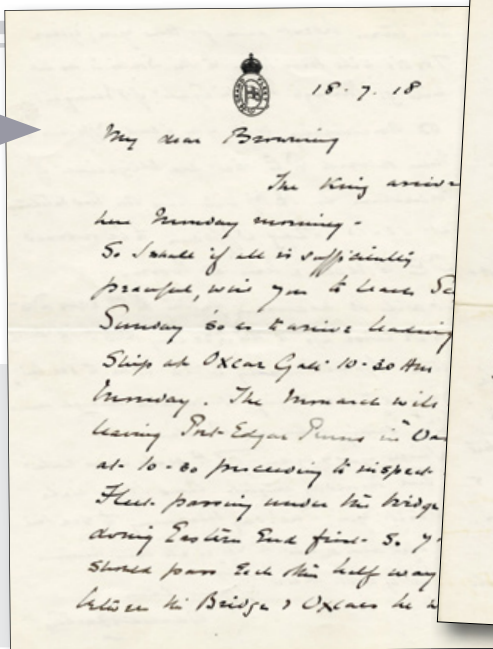 18.7.18
My dear Browning
The King arrive
here Monday morning -
So I shall if all is sufficiently
peaceful, wire you to leave
Sunday so as to arrive leading
Ship at Oxcar Gate 10-30 AM
Monday. The Monarch will
leaving Port Edgar in
at 10-30 proceeding to inspect
Fleet passing under the bridge
doing Eastern End first - So y
should pass Each other half way
between the Bridge & Oxcars he